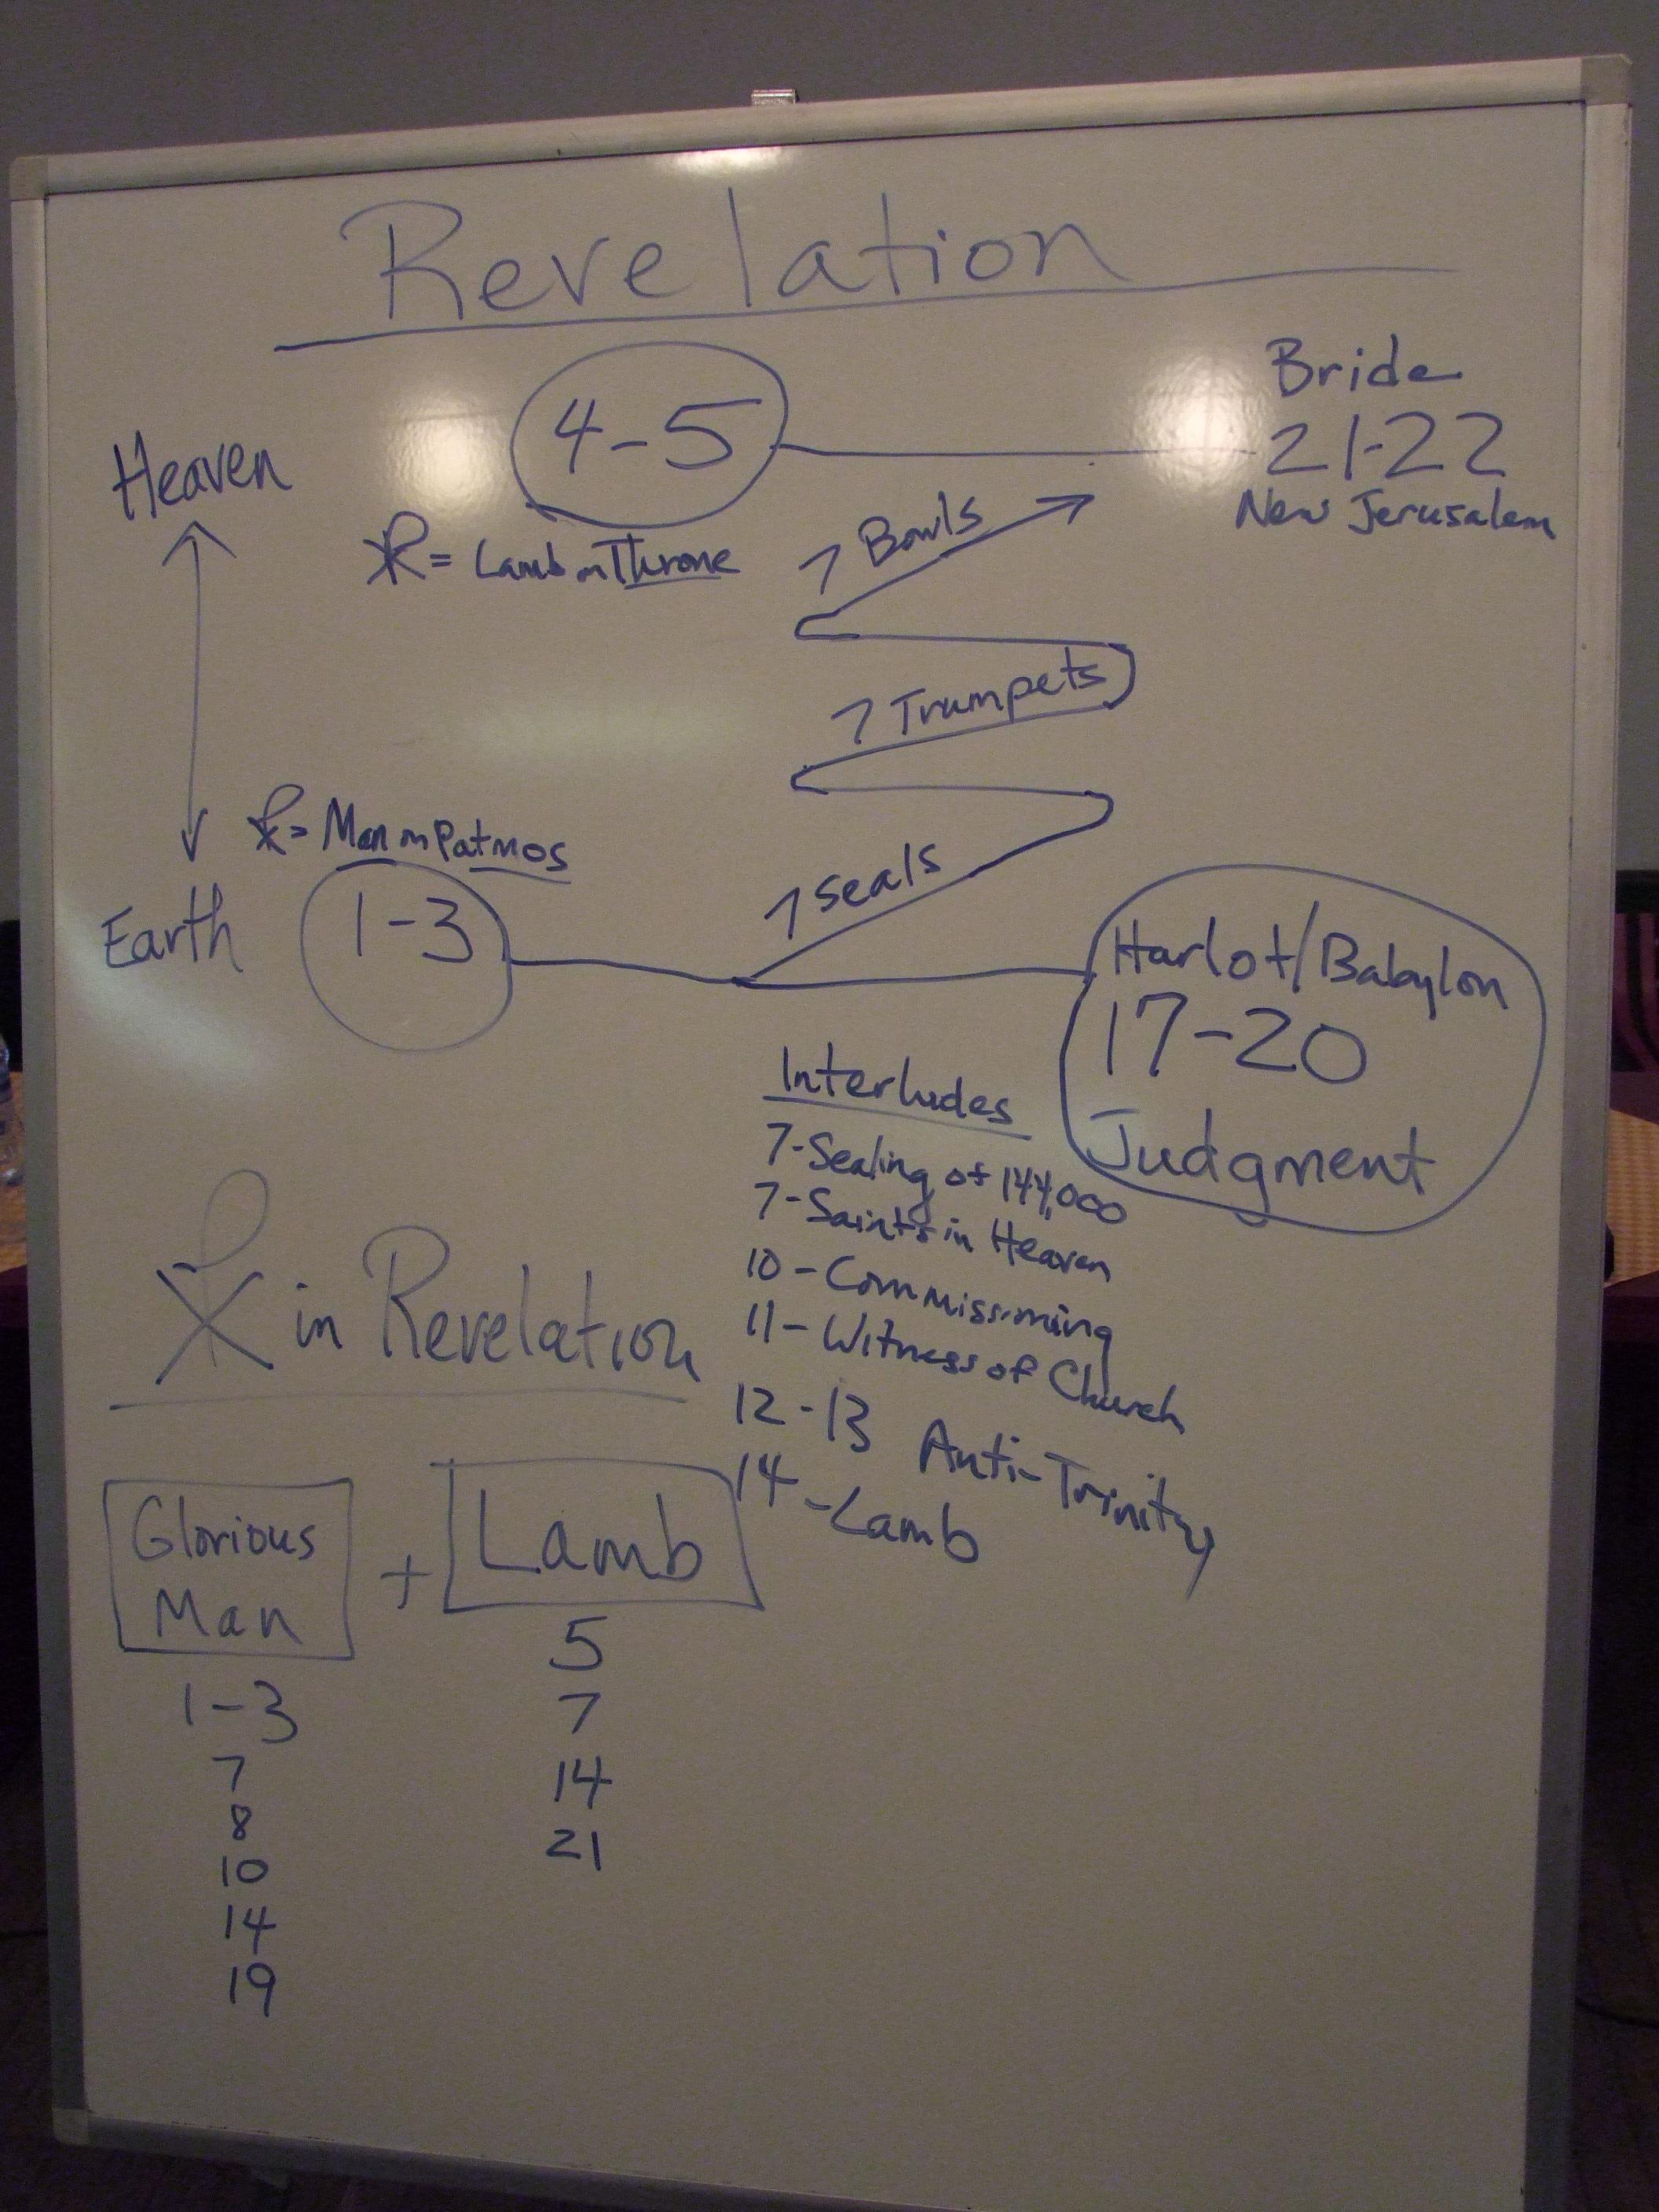 Revelation
Bride
4-5
21-22
Heaven
New Jerusalem
☧ = Lamb on Throne
7 Bowls
7 Trumpets
☧ = Man on Patmos
7 Seals
Earth
1-3
Harlot/Babylon
17-20
Judgment
Interludes
7-Sealing of 144,000
7-Saints in Heaven
10-Commissioning
11-Witness of Church
12-13 Anti-Trinity
14-Lamb
☧ in Revelation
Glorious
Man
+
Lamb
1-3
7
8
10
14
19
5
7
14
21